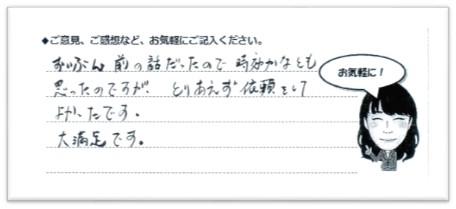 ◆ご意見、ご感想など、お気軽にご記入ください。
ずいぶん前の話だったので時効かなとも
思ったのですが、とりあえず依頼をして
よかったです。
大満足です。
お気軽に！